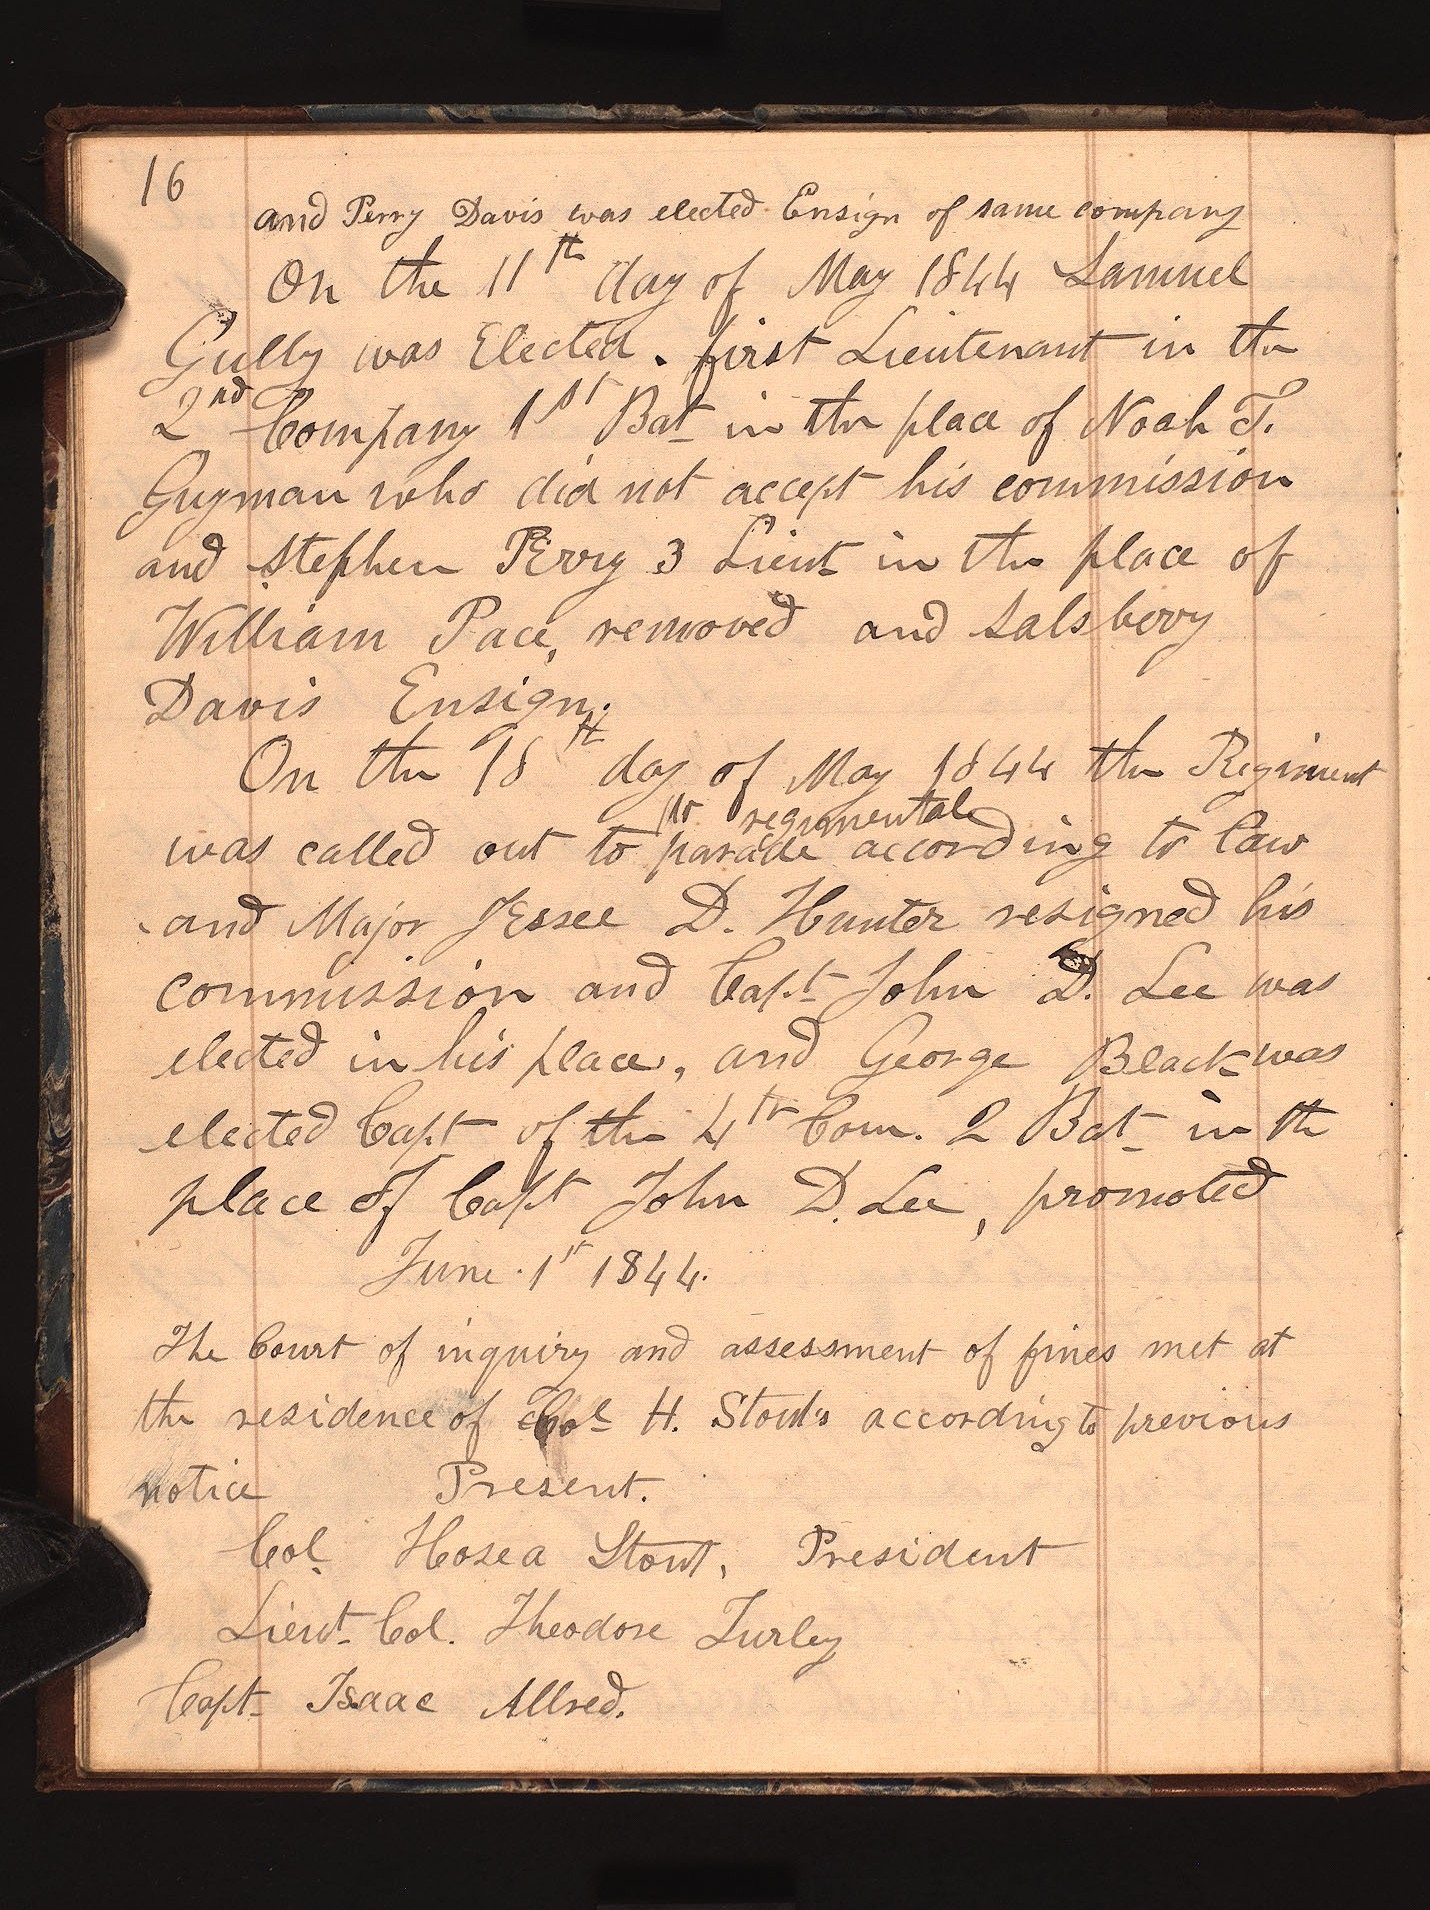 16
and Perry Davis was elected Ensign of same company
On the 11th day of May 1844 Samuel
Gully was Elected. first Lieutenant in the
2nd Company 1st Bat in the place of Noah T.
Guyman who did not accept his commission
and Stephen PErry 3 Lieut in the place of
William Pace, removed and Salsberry
Davis Ensign.
On the 18th day of May 1844 the Regiment
for regimental
was called out to parade according to law
and Major JEssee D. Hunter resigned his
commission and Capt John D. Lee was
elected in his place, and George Black was
elected Capt of the 4th Com. 2 Bat in th
place of Capt John D. Lee, promoted
June 1st 1844.
The Court of inquiry and assessment of fines met at
the residence of Col H. Stout's according to previous
notice Present.
Col. Hosea Stout, President
Lieut Col. Theodore Turley
Capt Isaac Allred.